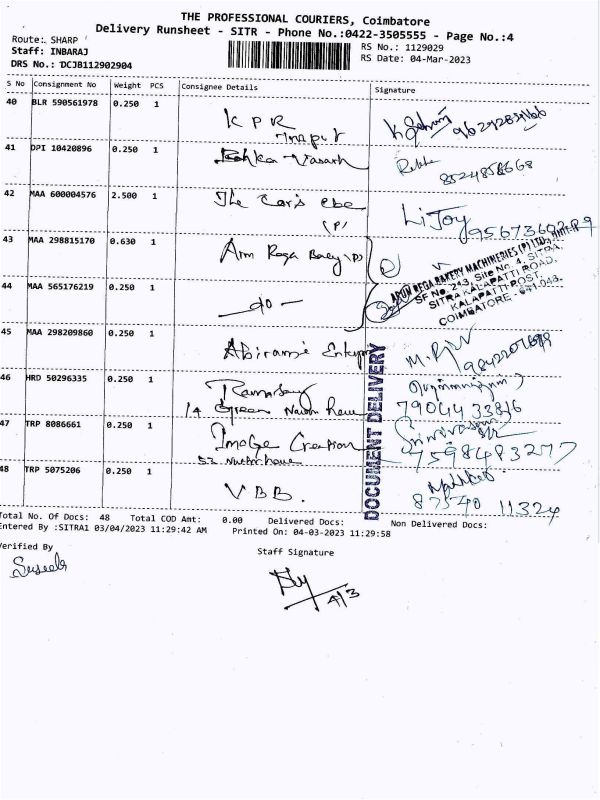 THE PROFESSIONAL COURIERS, Coimbatore
Delivery Runsheet - SITR - Phone No.:0422-3505555 - Page No.:4
Route: SHARP
RS No.: 1129029
Staff: INBARAJ
RS Date: 04-Mar-2023
DRS No.: DCJB112902904
S No Consignment No Weight PCS Consignee Details Signature
40 BLR 590561978 0.250 1 K P R
41 DPI 10420896 0.250 1 Rekha
8524858668
42 MAA 600004576 2.500 1 The Car's
(P) LiJoy
43 MAA 298815170 0.630 1
ARUN REGA BAKERY MACHINERIES (P) LTD.,
SF No. 213, Site No. 4, SITRA,
SITRA KALAPATTI ROAD,
KALAPATTI-POST,
COIMBATORE - 641-048.
44 MAA 565176219 0.250 1 -do-
45 MAA 298209860 0.250 1 Abirami
46 HRD 50296335 0.250 1
14 Green 79044 33816
47 TRP 8086661 0.250 1 Image Creation Srinivasan
52 7598483277
48 TRP 5075206 0.250 1 V B B.
87540 11324
DOCUMENT DELIVERY
Total No. Of Docs: 48 Total COD Amt: 0.00 Delivered Docs: Non Delivered Docs:
Entered By :SITRA1 03/04/2023 11:29:42 AM Printed On: 04-03-2023 11:29:58
Verified By Staff Signature
4/3